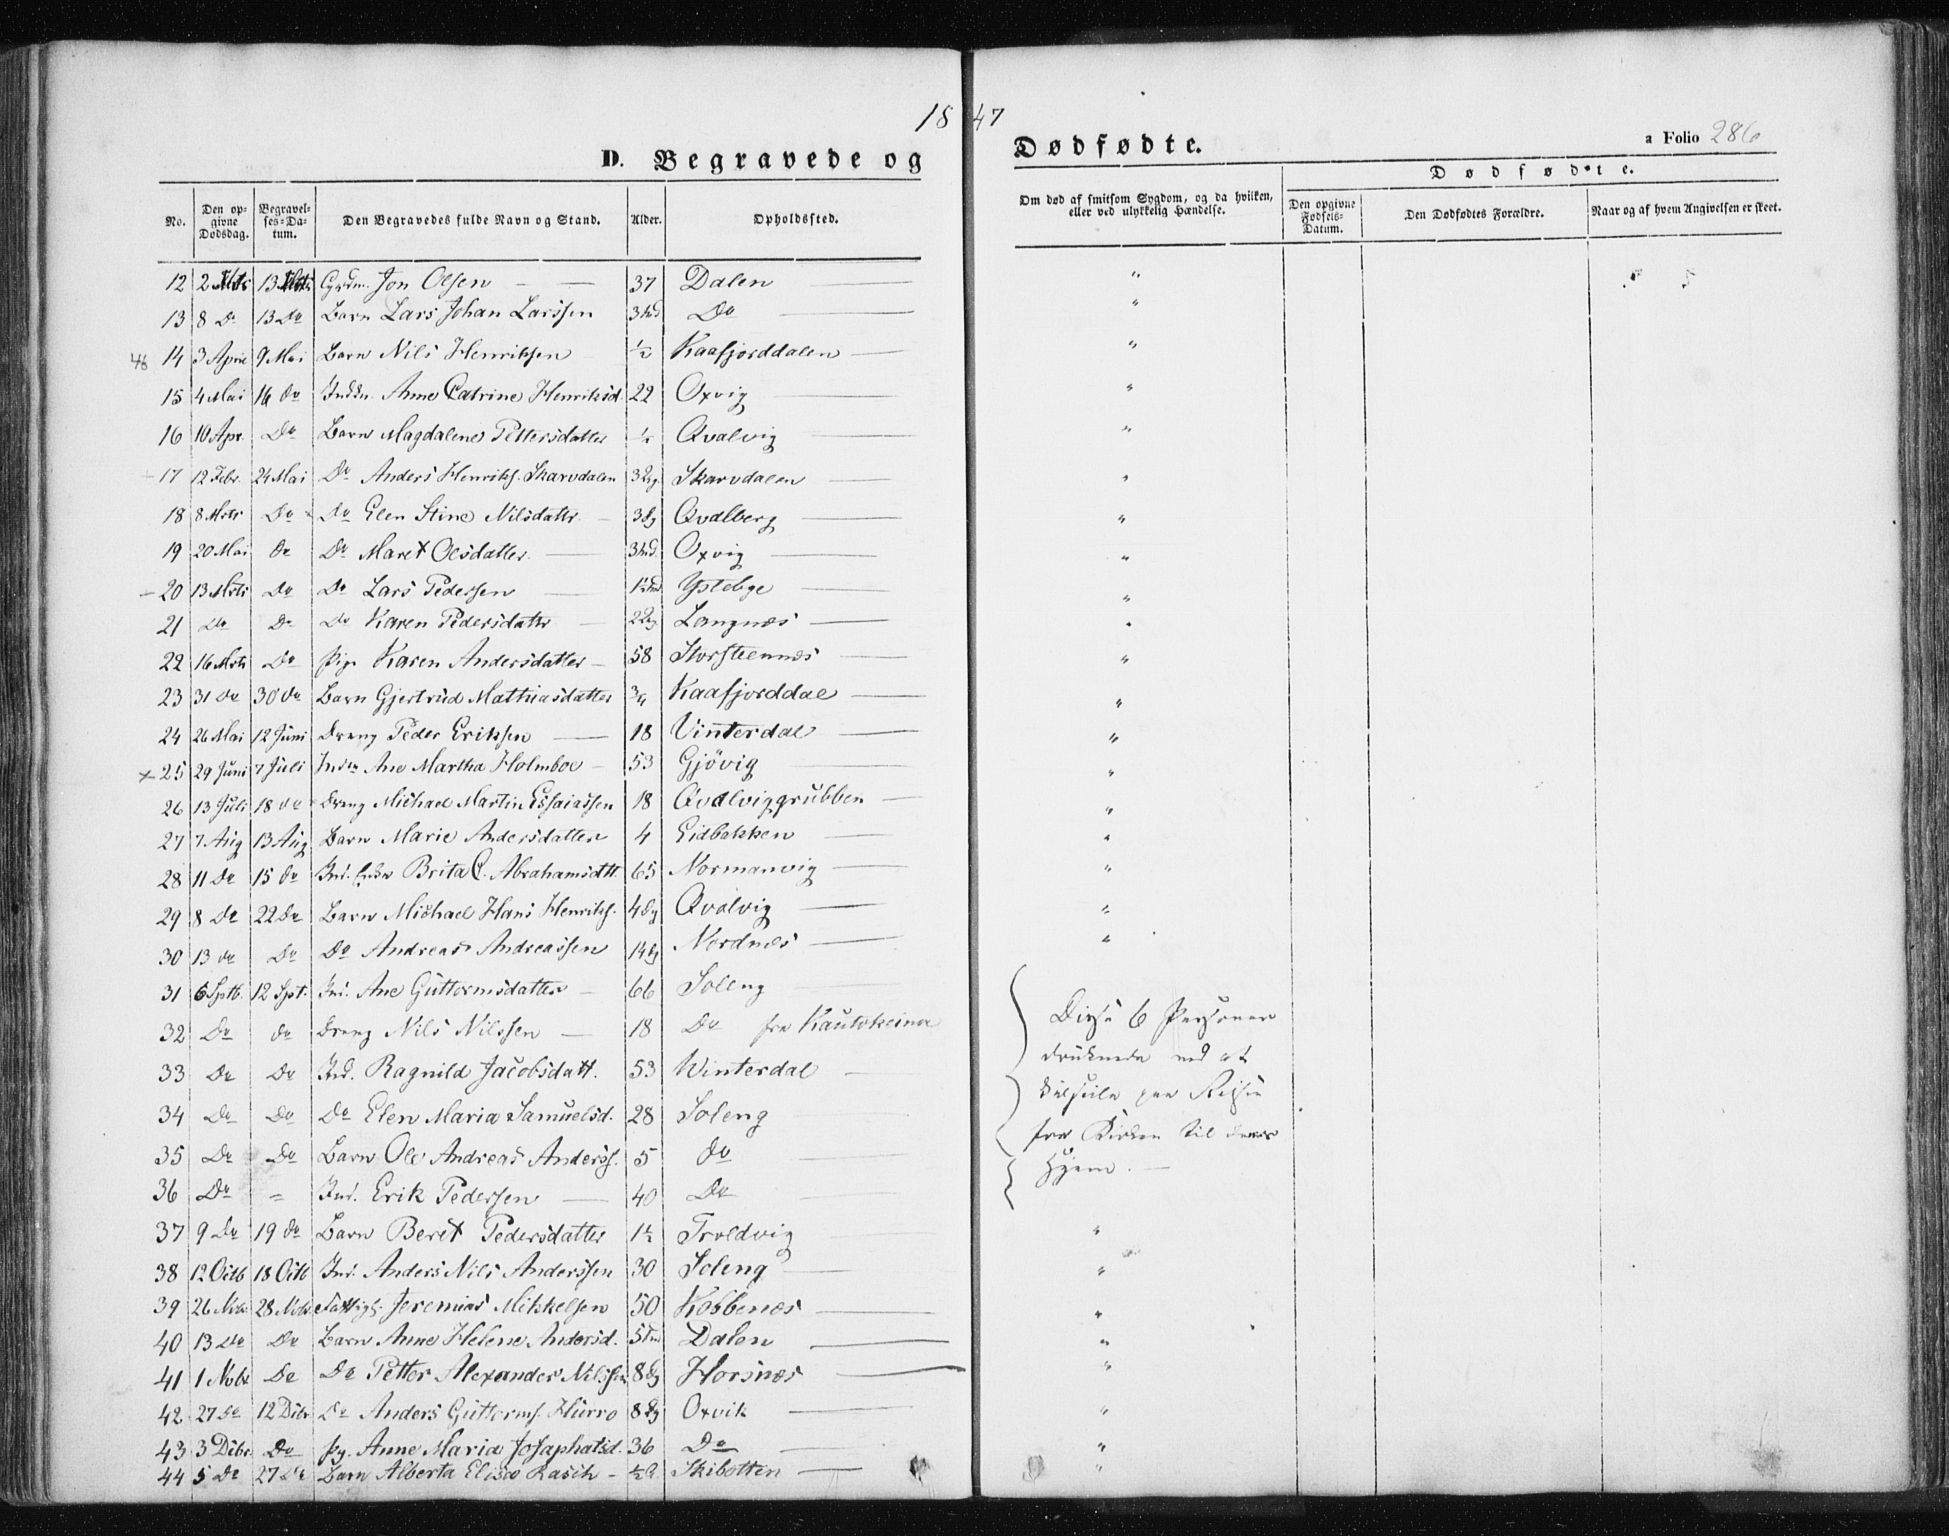 1847
D. Begravede og Dødfødte.
a Folio 286
No. | Den opgivne Dødsdag. | Begravelses-Datum. | Den Begravedes fulde Navn og Stand. | Alder. | Opholdssted. | Om død af smitsom Sygdom, og da hvilken, eller ved ulykkelig Hændelse. | Dødfødte. | Den opgivne Fødsels-Datum. | Den Dødfødtes Forældre. | Naar og af hvem Angivelsen er skeet.
12 2 Mrts 13 Mrts Grdm. Jon Olsen 37 Dalen "
13 8 Do 13 Do Barn Lars Johan Larssen 3 Do "
14 3 April 9 Mai Barn Nils Henriksen ½ Kaafjorddalen "
15 4 Mai 16 do Anne Catrine Henriksd. 22 Oxvig "
16 10 Apr. Do Barn Magdalene Pettersdatter Qvalvig "
17 12 Febr. 24 Mai Do Anders Henriks. Skarvdalen 3 Skarvdalen "
18 8 Mrts Do Do Elen Stine Nilsdattr. 3 Qvalberg "
19 20 Mai do Do Maret Olsdatter 3 Oxvig "
20 13 Mrts Do Do Lars Pedersen Ystebye "
21 Do Do Do Karen Pedersdattr Langnæs "
22 16 Mrts Do Pige Karen Andersdatter 58 Storsteennæs "
23 31 do 30 do Barn Gjertrud Mathiasdatter ¾ Kaafjorddal "
24 26 Mai 12 Juni Dreng Peder Eriksen 18 Vinterdal "
× 25 29 Juni 7 Juli Ane Martha Holmboe 53 Gjövig "
26 13 Juli 18 do Dreng Michael Martin Essaiassen 18 Qvalviggrubben "
27 7 Aug 13 Aug Barn Marie Andersdatter 4 Eidbakken "
28 11 Do 15 do Ind. Enke Brita C. Abrahamsdtt. 65 Normanvig "
29 8 Do 22 Do Barn Michael Hans Henriks. 4 Dg Qvalvig "
30 13 do Do Do Andreas Andreassen 14 Dg Nordnæs "
31 6 Septb. 12 Spt. Ind. Ane Guttormsdatter 66 Soleng
32 Do do Dreng Nils Nilssen 18 Do fra Kautokeino
33 Do Do Ind. Ragnild Jacobsdatt. 53 Winterdal
34 Do Do Do Elen Maria Samuelsd. 28 Soleng
35 Do Do Barn Ole Andreas Anders. 5 do
36 Do " Ind. Erik Pedersen 40 Do
Disse 6 Personer
druknede ved at
kulseile paa Reisen
fra Kirken til deres
Hjem.
37 9 Do 19 do Barn Beret Pedersdatter 1½ Troldvig "
38 12 Octb 18 Octb Ind. Anders Nils Anderssen 30 Soleng "
39 26 Nvbr 28 Nvbr Fattigl. Jeremias Mikkelsen 50 Kobbenæs "
40 13 Do Do Barn Anne Helene Andersd. 5 Dalen "
41 1 Nvbr Do Do Petter Alexander Nilssen 8 Dg Horsnæs "
42 27 Do 12 Dcbr Do Anders Guttorms. Hurro 8 Dg Oxvik "
43 3 Dcbr Do Pg. Anne Maria Josaphatsd. 36 Do "
44 5 Do 27 Do Barn Alberta Elisa Rasch Skibotten "